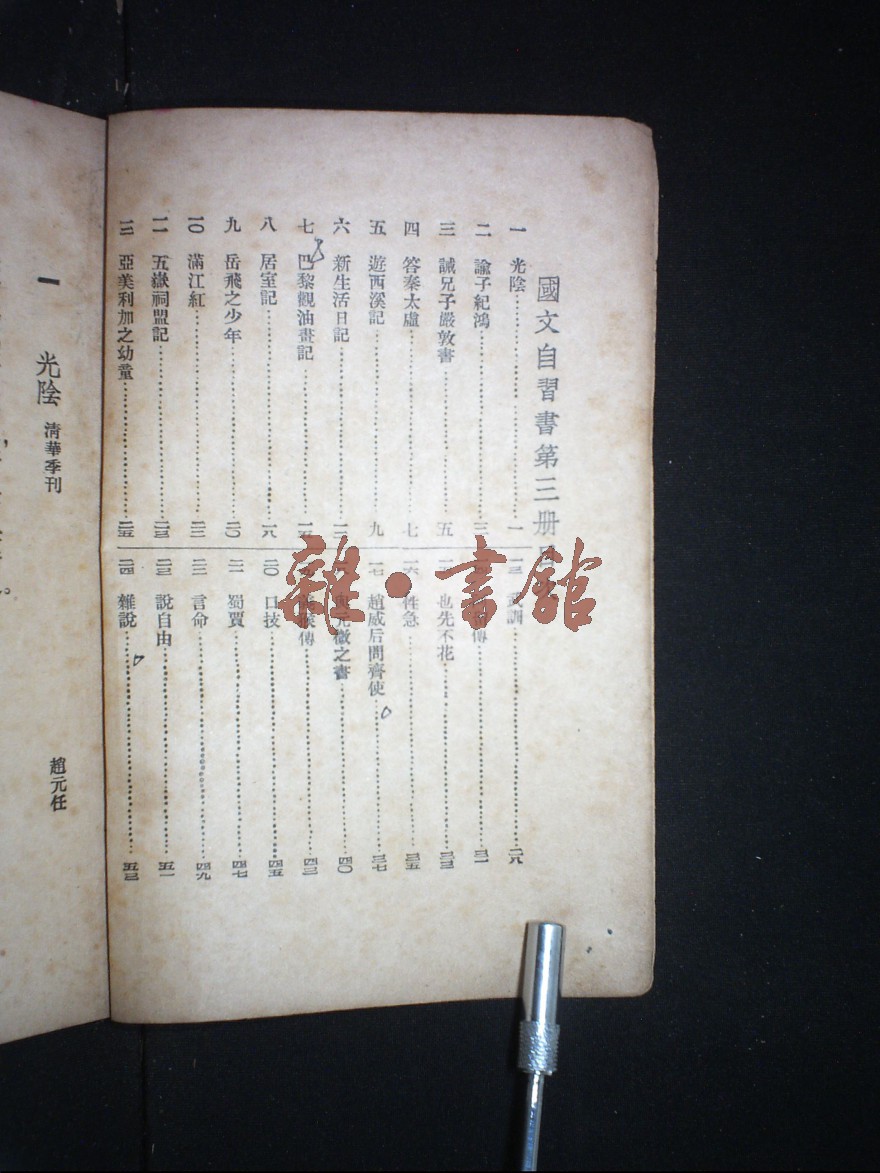 國文自習書第三册目
一 光陰 一
二 諭子紀鴻 三
三 誡兄子嚴敦書 五
四 答秦太虛 七
五 遊西溪記 九
六 新生活日記
七 巴黎觀油畫記
八 居室記 一八
九 岳飛之少年 二〇
一〇 滿江紅 二二
一一 五嶽祠盟記 二三
一二 亞美利加之幼童 二五
一三 武訓 二八
傳 三一
一 也先不花 三三
一六 性急 三五
一七 趙威后問齊使 三七
與元微之書 四〇
傳 四三
二〇 口技 四五
二一 蜀賈 四七
二二 言命 四九
二三 說自由 五一
二四 雜說 五三
一 光陰 清華季刊 趙元任
雜·書館